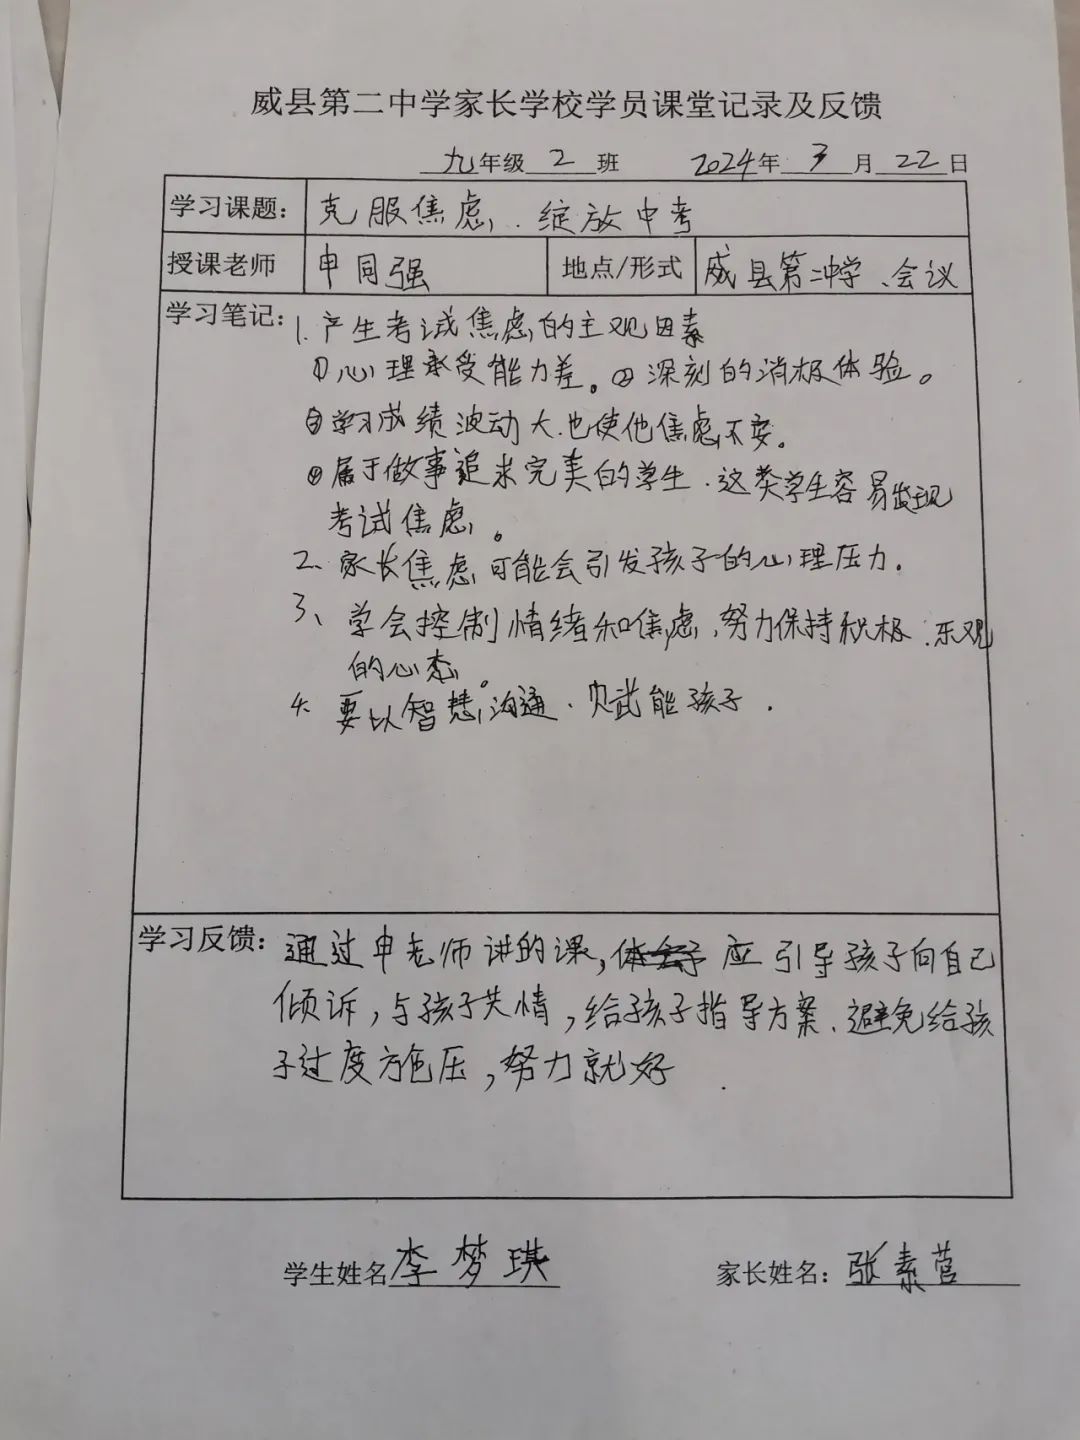 威县第二中学家长学校学员课堂记录及反馈
九年级 2 班 2024年 3 月 22 日
学习课题: 克服焦虑、绽放中考
授课老师 申同强 地点/形式 威县第二中学、会议
学习笔记: 1. 产生考试焦虑的主观因素
①心理承受能力差。②深刻的消极体验。
③学习成绩波动大.也使他焦虑不安。
④属于做事追求完美的学生.这类学生容易出现
考试焦虑。
2、家长焦虑可能会引发孩子的心理压力.
3、学会控制情绪和焦虑,努力保持积极、乐观
的心态。
4. 要以智慧沟通、赋能孩子.
学习反馈: 通过申老师讲的课,应引导孩子向自己
倾诉,与孩子共情,给孩子指导方案、避免给孩
子过度施压,努力就好.
学生姓名李梦琪 家长姓名: 张素营